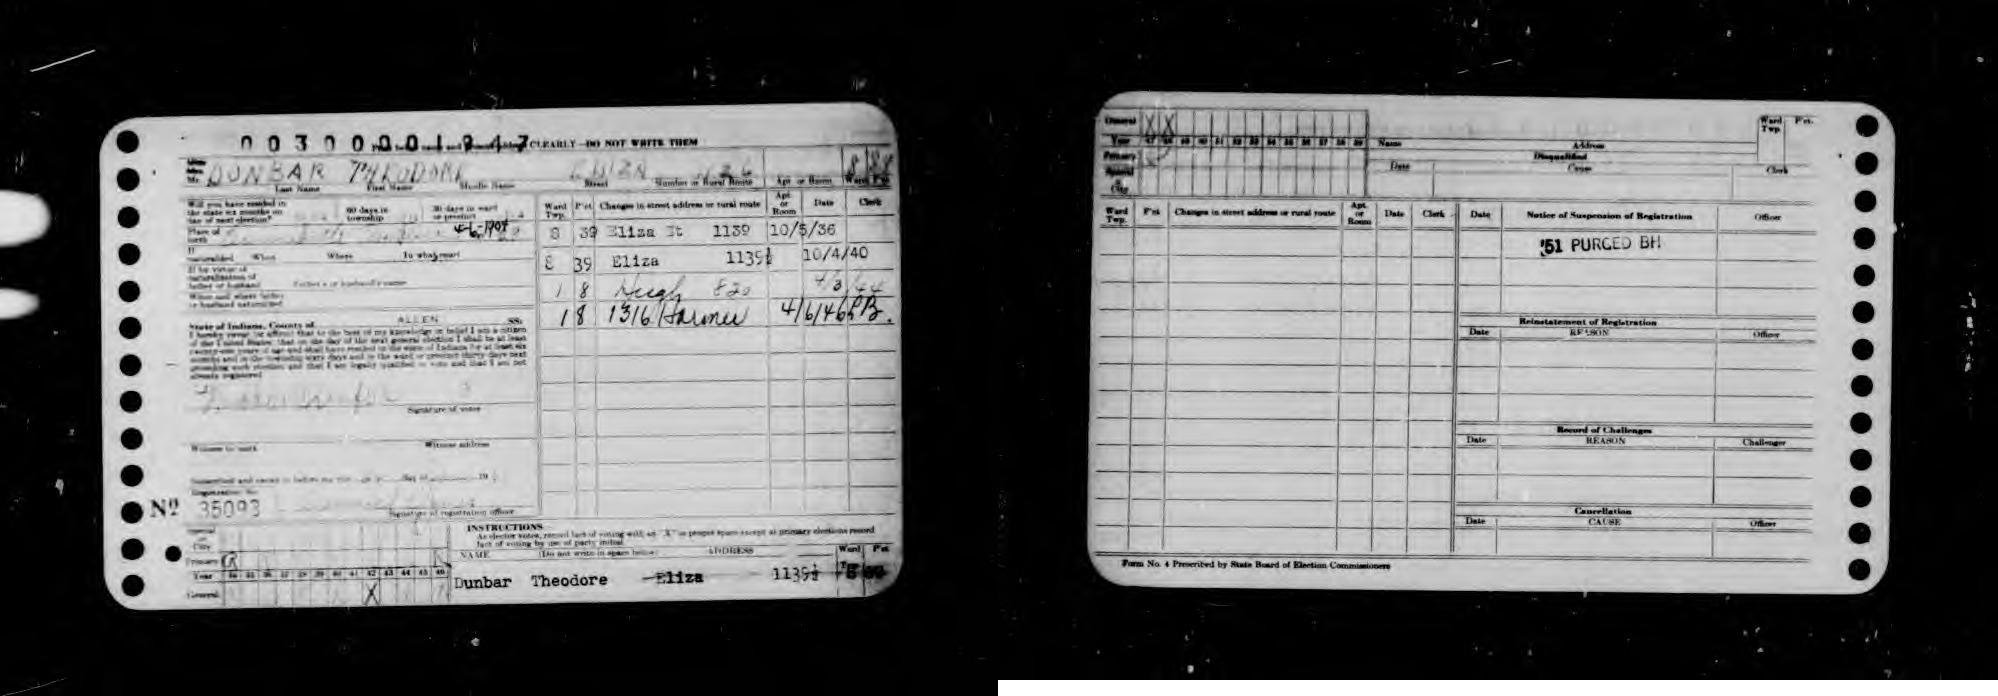 00300001847 CLEARLY—DO NOT WRITE THEM
Mr. DUNBAR THEODORE ELIZA 8
Last Name First Name Middle Name Street Number or Rural Route Apt. or Room Ward Pct.
Will you have resided in the state six months on day of next election? 60 days in township 30 days in ward or precinct
Place of birth 4-6-1904
If naturalized When Where To what court
If by virtue of naturalization of father or husband Father's or husband's name
When and where father or husband naturalized
State of Indiana, County of ALLEN SS:
I hereby swear (or affirm) that to the best of my knowledge or belief I am a citizen
of the United States; that on the day of the next general election I shall be at least
twenty-one years of age and shall have resided in the state of Indiana for at least six
months and in the township sixty days and in the ward or precinct thirty days next
preceding such election; and that I am legally qualified to vote and that I am not
already registered
Signature of voter
Witness to mark Witness address
Subscribed and sworn to before me this day of 19
Registration No.
Nº 35093
Signature of registration officer
Ward Twp. P'ct Changes in street address or rural route Apt. or Room Date Clerk
8 39 Eliza St 1139 10/5/36
8 39 Eliza 1139½ 10/4/40
1 8 Hugh 820 4/3/44
1 8 1316 Harmer 4/6/46 PB.
INSTRUCTIONS
As elector votes, record fact of voting with an "X" in proper space except at primary elections record
fact of voting by use of party initial.
NAME (Do not write in space below) ADDRESS Ward P'ct
City
Primary R
Year 34 35 36 37 38 39 40 41 42 43 44 45 46
General X
Dunbar Theodore Eliza 1139½ 8 39
General X X
Year 47 48 49 50 51 52 53 54 55 56 57 58 59
Primary
Special or City
Name Address Ward Twp. P'ct.
Disqualified
Date Cause Clerk
Ward Twp. P'ct Changes in street address or rural route Apt. or Room Date Clerk
Date Notice of Suspension of Registration Officer
'51 PURGED BH
Reinstatement of Registration
Date REASON Officer
Record of Challenges
Date REASON Challenger
Cancellation
Date CAUSE Officer
Form No. 4 Prescribed by State Board of Election Commissioners